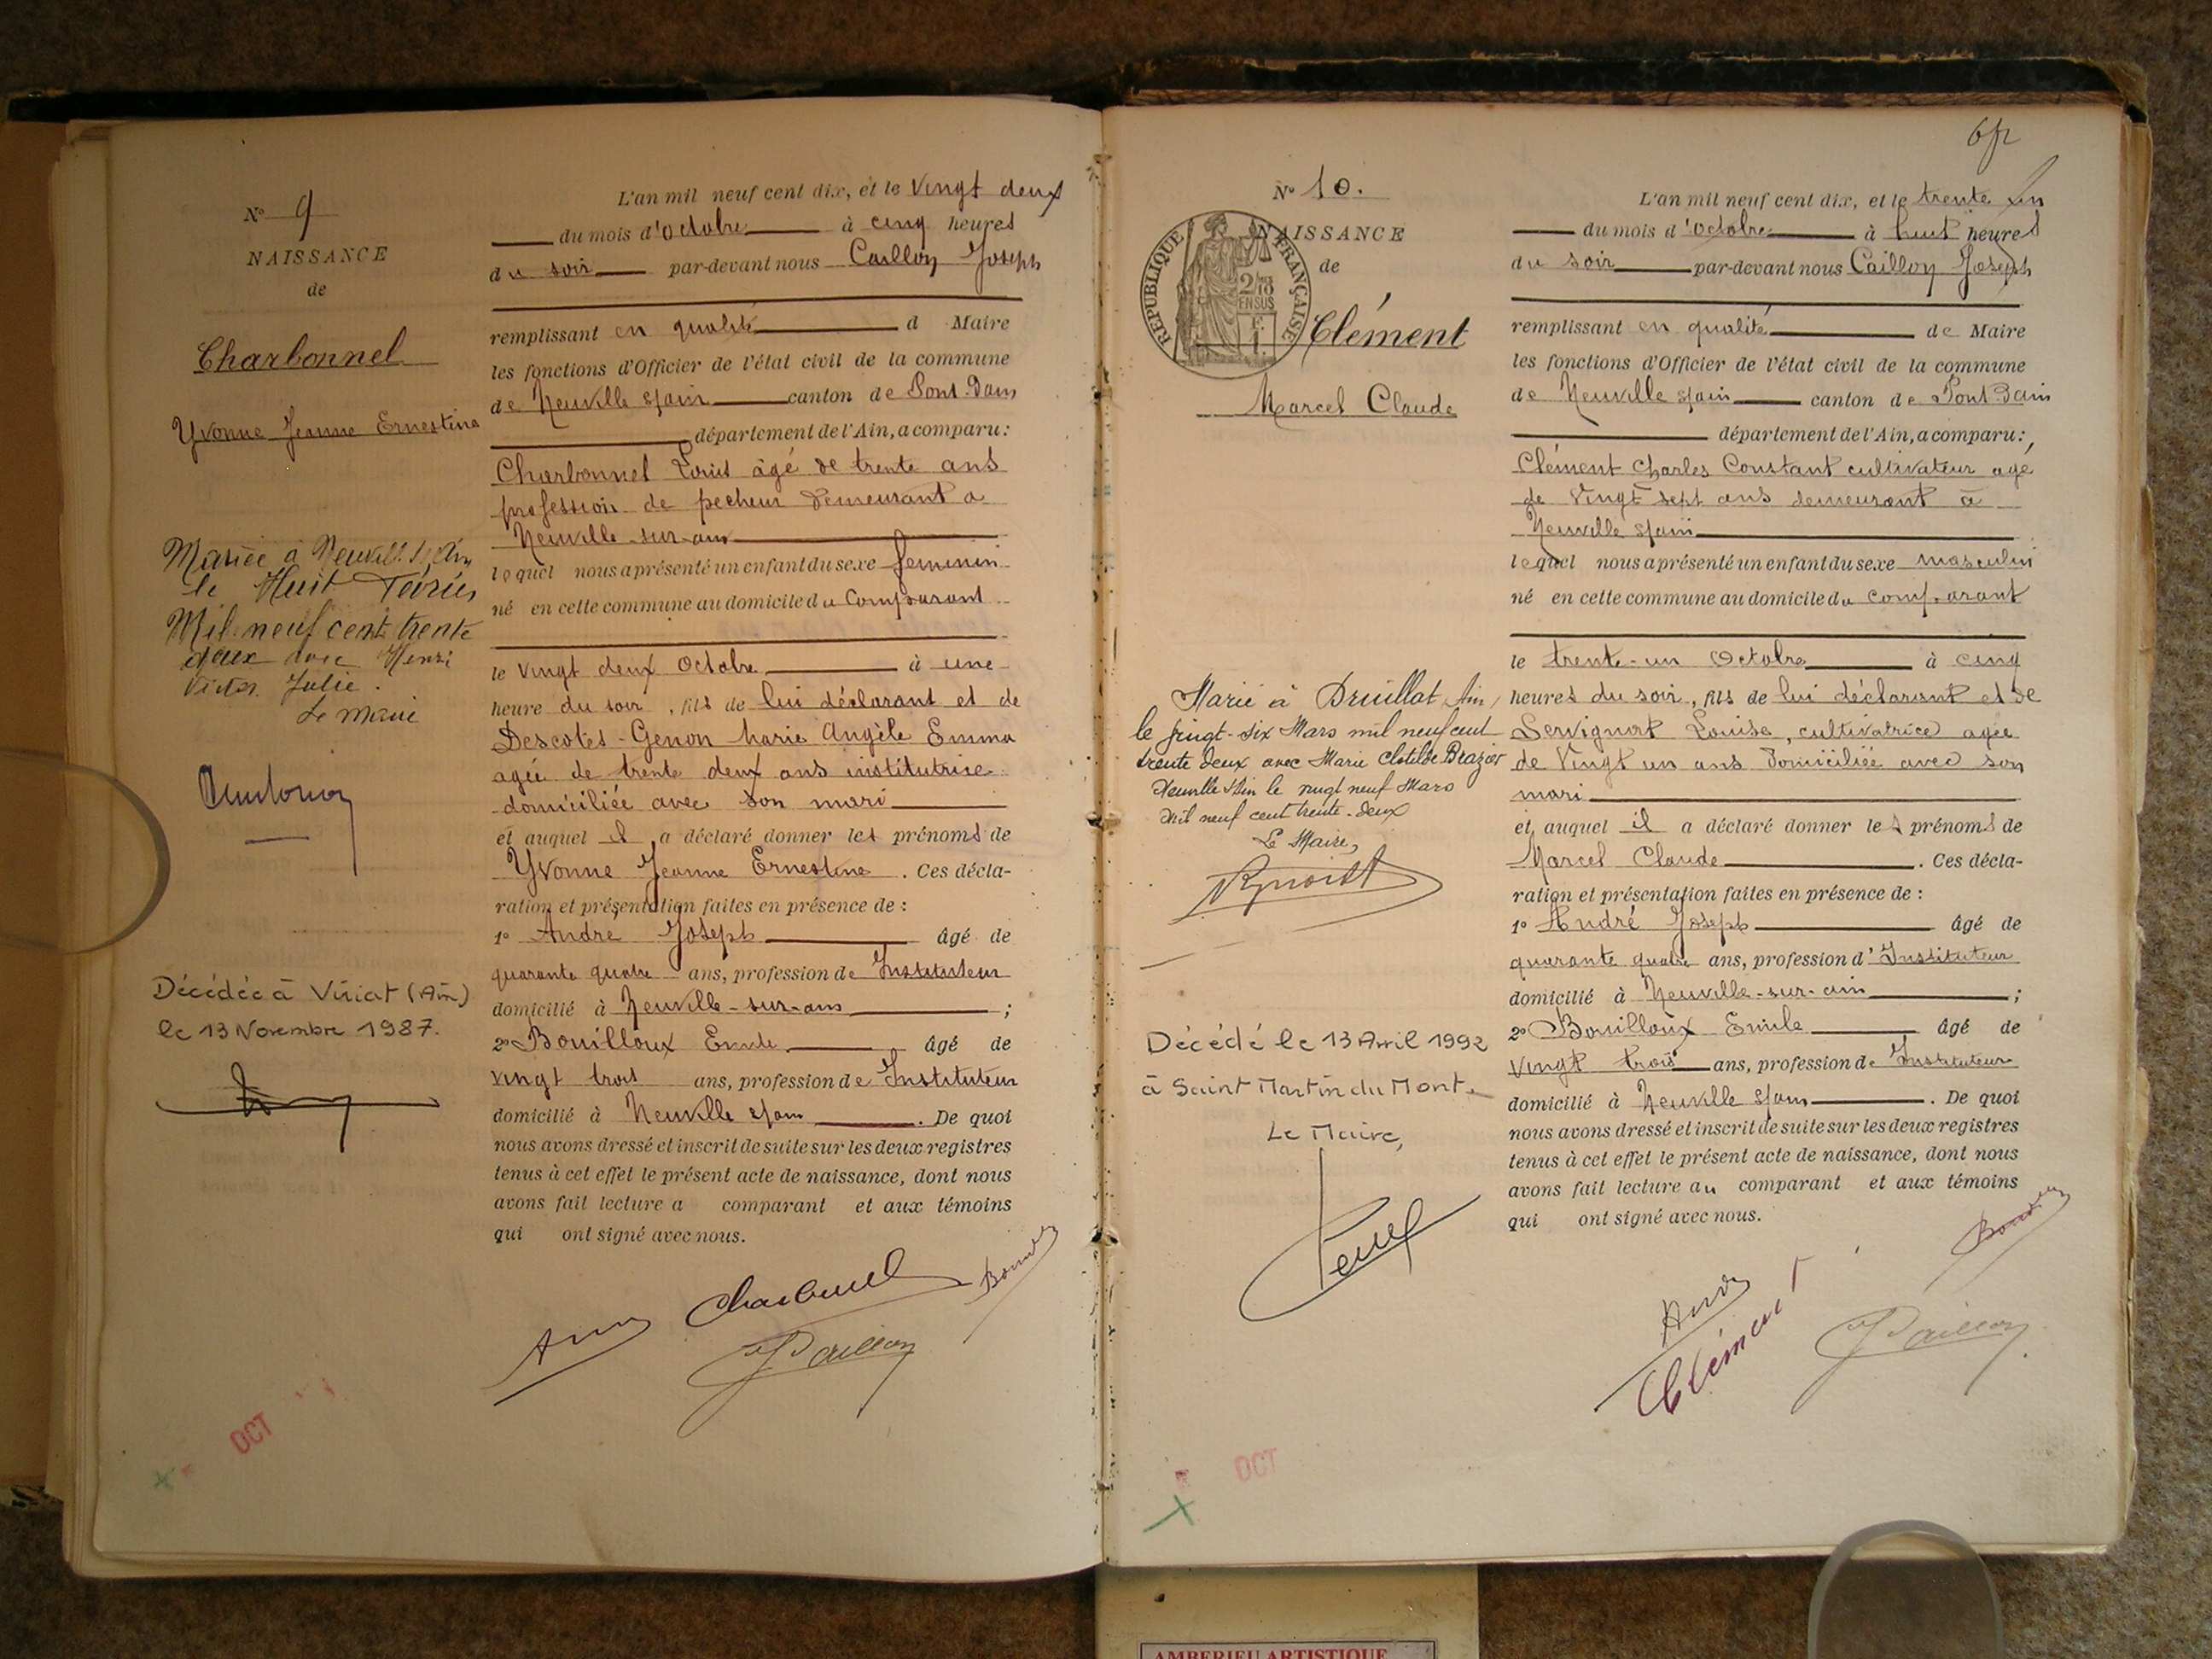 N° 9
NAISSANCE
de
Charbonnel
Yvonne Jeanne Ernestine
Mariée à Neuville s/ Ain
le Huit Février
Mil neuf cent trente
deux avec Henri
Victor Julie.
Le Maire
Décédée à Viriat (Ain)
le 13 Novembre 1987.
OCT
L'an mil neuf cent dix, et le vingt deux
du mois d'octobre à cinq heures
du soir par-devant nous Cailloy Joseph
remplissant en qualité d Maire
les fonctions d'Officier de l'état civil de la commune
de Neuville s/ain canton de Pont-Dain
département de l'Ain, a comparu :
Charbonnel Louis âgé de trente ans
profession de pecheur demeurant a
Neuville-sur-ain
lequel nous a présenté un enfant du sexe feminin
né en cette commune au domicile du Comparant
le vingt deux Octobre à une
heure du soir, fils de lui déclarant et de
Descotes-Genon Marie Angèle Emma
agée de trente deux ans institutrice
domiciliée avec son mari
et auquel il a déclaré donner les prénoms de
Yvonne Jeanne Ernestine. Ces décla-
ration et présentation faites en présence de :
1° André Joseph âgé de
quarante quatre ans, profession de Instituteur
domicilié à Neuville-sur-ain ;
2° Bouilloux Emile âgé de
vingt trois ans, profession de Instituteur
domicilié à Neuville s/ain. De quoi
nous avons dressé et inscrit de suite sur les deux registres
tenus à cet effet le présent acte de naissance, dont nous
avons fait lecture a comparant et aux témoins
qui ont signé avec nous.
Charbonnel
N° 10.
RÉPUBLIQUE FRANÇAISE
NAISSANCE
de
Clément
Marcel Claude
Marié à Druillat, Ain,
le vingt-six Mars mil neuf cent
trente deux avec Marie Clotilde Brazier
Neuville s/Ain le vingt neuf Mars
Mil neuf cent trente-deux
Le Maire,
Décédé le 13 Avril 1992
à Saint Martin du Mont.
Le Maire,
OCT
L'an mil neuf cent dix, et le trente un
du mois d'octobre à huit heures
du soir par-devant nous Cailloy Joseph
remplissant en qualité de Maire
les fonctions d'Officier de l'état civil de la commune
de Neuville s/ain canton de Pont Dain
département de l'Ain, a comparu :
Clément Charles Constant cultivateur agé
de vingt sept ans demeurant à
Neuville s/ain
lequel nous a présenté un enfant du sexe masculin
né en cette commune au domicile du comparant
le trente-un Octobre à cinq
heures du soir, fils de lui déclarant et de
Servignat Louise, cultivatrice agée
de vingt un ans domiciliée avec son
mari
et auquel il a déclaré donner les prénoms de
Marcel Claude. Ces décla-
ration et présentation faites en présence de :
1° André Joseph âgé de
quarante quatre ans, profession d'Instituteur
domicilié à Neuville-sur-ain ;
2° Bouilloux Emile âgé de
vingt trois ans, profession de Instituteur
domicilié à Neuville s/ain. De quoi
nous avons dressé et inscrit de suite sur les deux registres
tenus à cet effet le présent acte de naissance, dont nous
avons fait lecture au comparant et aux témoins
qui ont signé avec nous.
Clément
AMBERIEU ARTISTIQUE